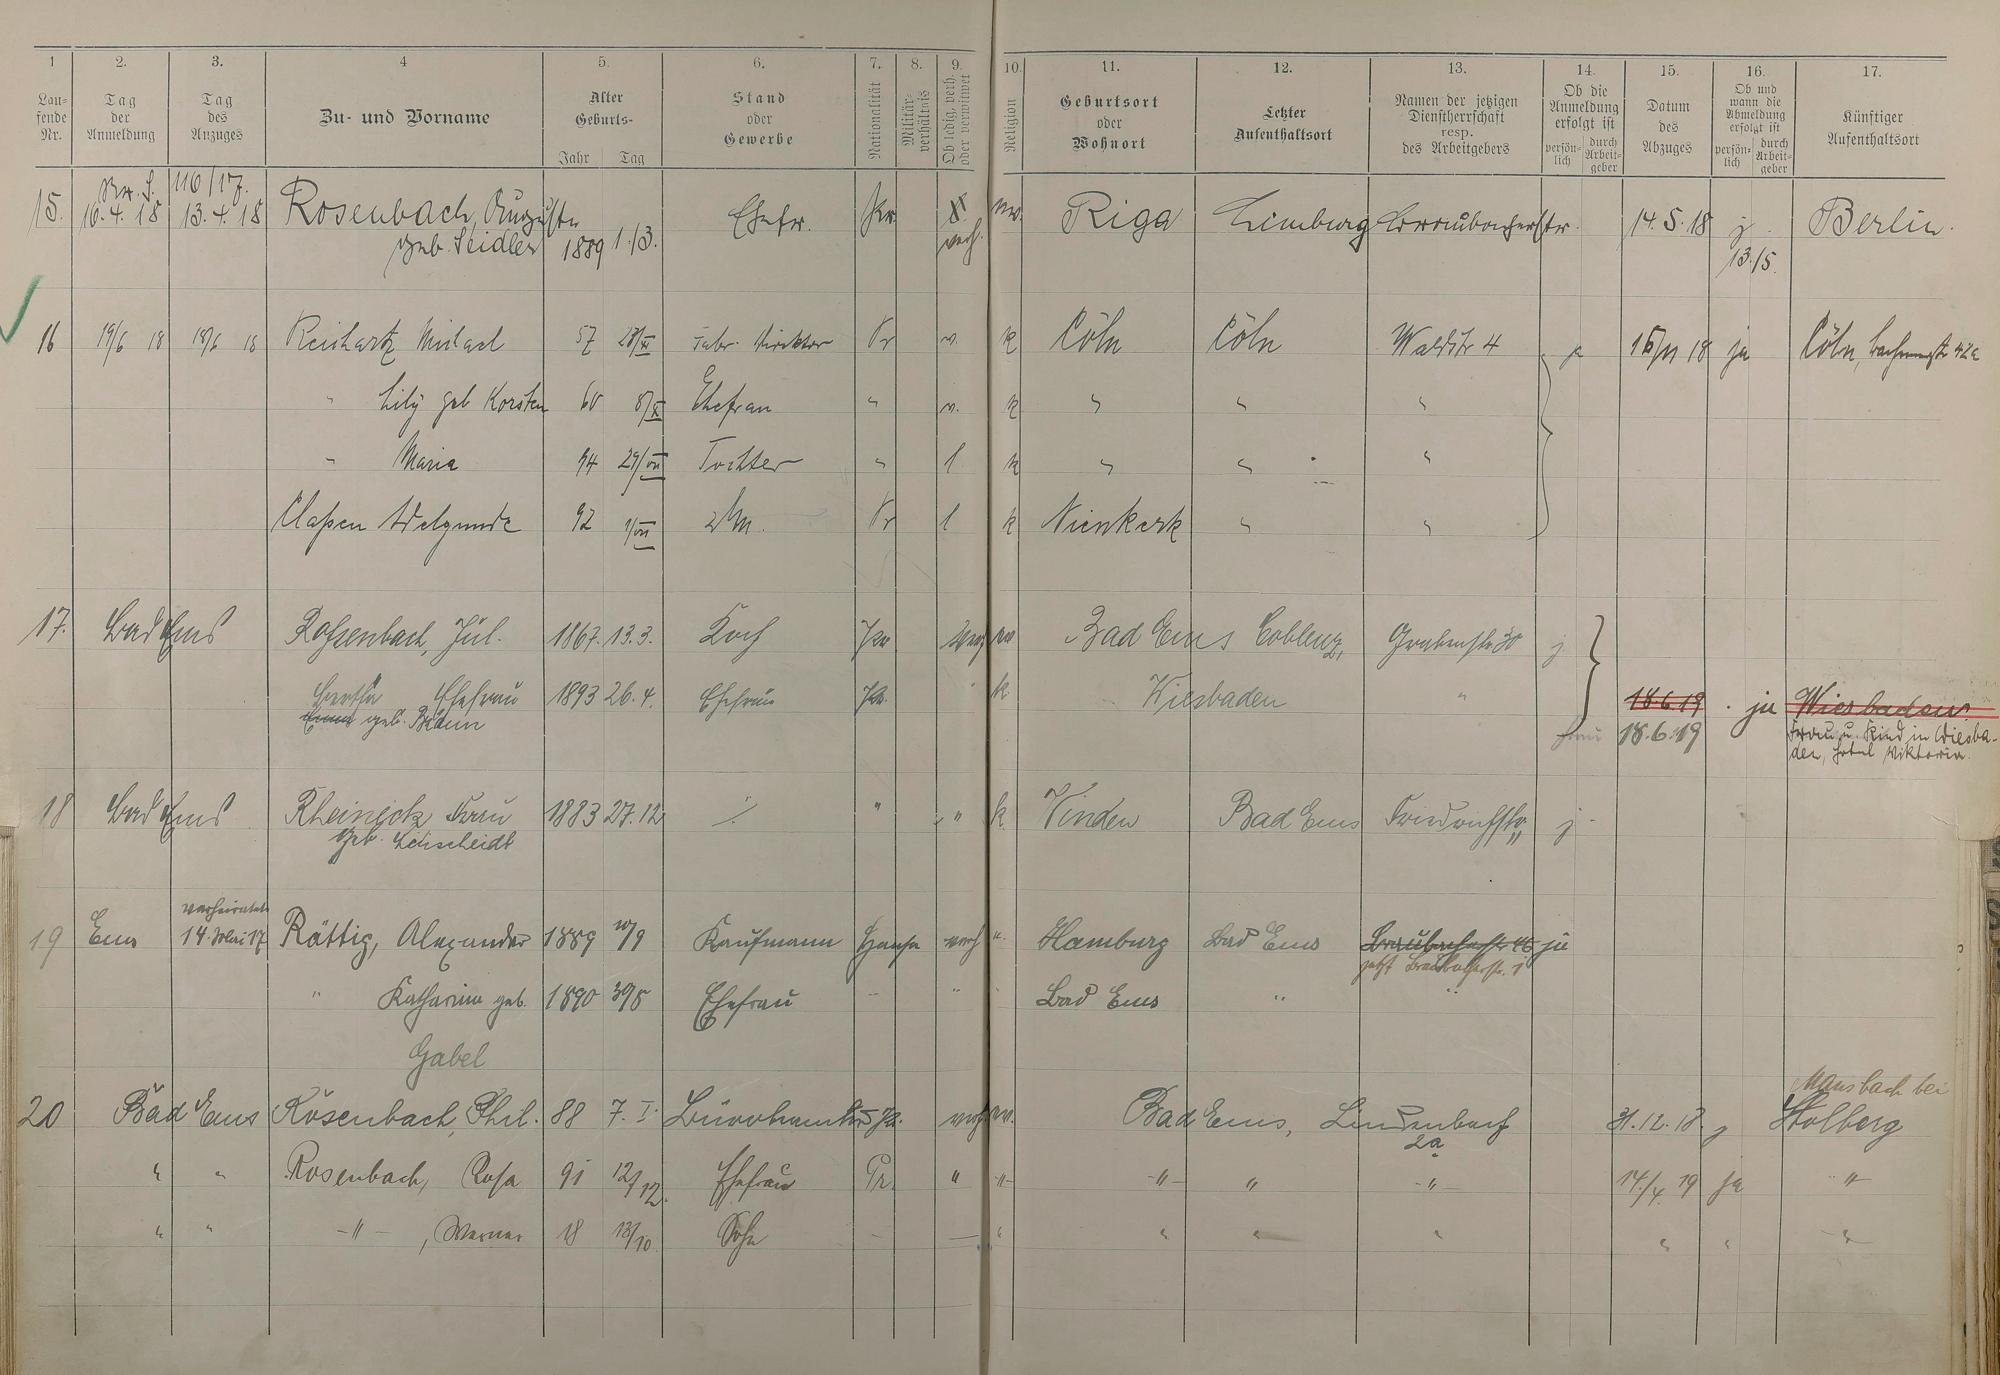 1 2. 3. 4 5. 6. 7. 8. 9. 10. 11. 12. 13. 14. 15. 16. 17.
Lau-
fende
Nr.
Tag
der
Anmeldung
Tag
des
Anzuges
Zu- und Vorname
Alter
Geburts-
Jahr Tag
Stand
oder
Gewerbe
Nationalität
Militär-
verhältnis
Ob ledig, verh.
oder verwitwet
Religion
Geburtsort
oder
Wohnort
Letzter
Aufenthaltsort
Namen der jetzigen
Dienstherrschaft
resp.
des Arbeitgebers
Ob die
Anmeldung
erfolgt ist
persön-
lich
durch
Arbeit-
geber
Datum
des
Abzuges
Ob und
wann die
Abmeldung
erfolgt ist
persön-
lich
durch
Arbeit-
geber
Künftiger
Aufenthaltsort
110/17.
15. 16.4.18 13.4.18 Rosenbach, Auguste Ehefr. Pr. Riga Limburg 14.5.18 j. Berlin.
geb. Seidler 1889 1./3. verh. 13./5.
16 19/6 18 18/6 18 Reichartz Michael 57 Fabr. Direktor Pr v. k Cöln Cöln Waldstr 4 ja 15/11 18 ja Cöln,
" Lily geb Korsten 60 Ehefrau " v. k " " "
" Maria 94 29/VII Tochter " l k " " "
Claßen Adelgunde 92 1/VII Pr l k Nienkerk " "
17. Bad Ems Roßenbach, Jul. 1867. 13.3. Koch Pr Bad Ems Coblenz, Grabenstr. 30 j
Bertha Ehefrau 1893 26.4. Ehefrau Pr. k. Wiesbaden " 18.6.19 ja Wiesbaden
geb. 18.6.19 Frau u. Kind in Wiesba-
den, Hotel Viktoria.
18 Bad Ems Rheinick Frau 1883 27.12 " " k Winden Bad Ems Friedrichstr. j
geb.
verheiratet
19 Ems 14. Mai 17 Rättig, Alexander 1889 10/9 Kaufmann verh " Hamburg Bad Ems Braubacherstr ja
jetzt Braubacherstr. 1
" Katharina geb. 1890 30/8 Ehefrau " Bad Ems " "
Gabel
Mausbach bei
20 Bad Ems Rosenbach, Phil. 88 7. I. Bürobeamter Pr. verh. Bad Ems, Lindenbach 31.12.18. j Stolberg
2a
" " Rosenbach, Rosa 91 12/12. Ehefrau Pr. " -"- -"- " -"- 14./4. 19 ja -"-
" " -"-, Werner 18 13/10 Sohn - " " " " " " -"-